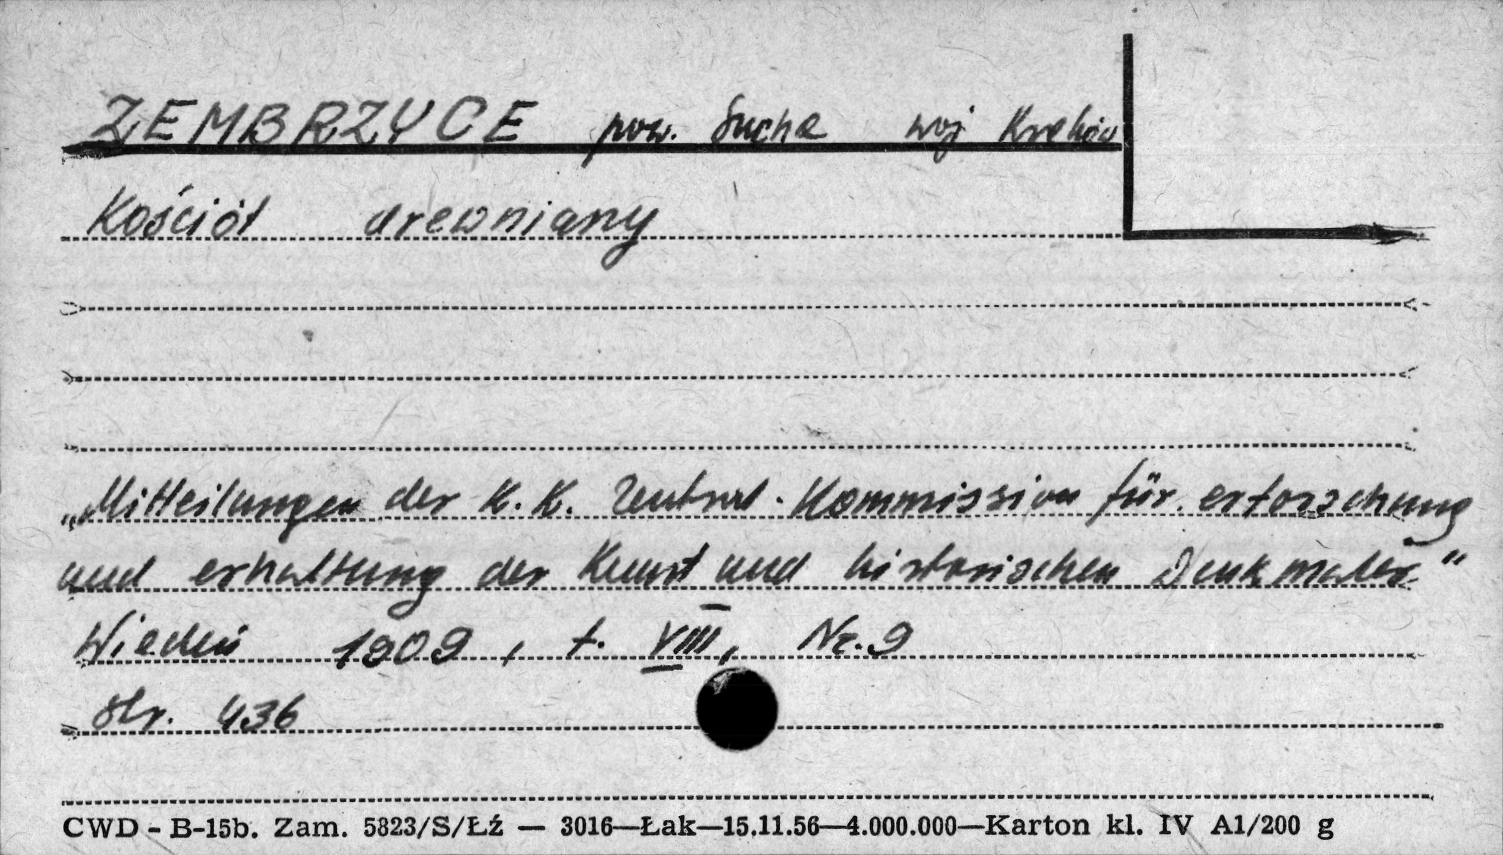 ZEMBRZYCE pow. Sucha woj Kraków
Kościół drewniany
„Mitteilungen der K.K. Zentral-Kommission für erforschung
und erhaltung der Kunst und historischen Denkmaler"
Wiedeń 1909, t. VIII, Nr. 9
str. 436
CWD - B-15b. Zam. 5823/S/Łź — 3016—Łak—15.11.56—4.000.000—Karton kl. IV A1/200 g